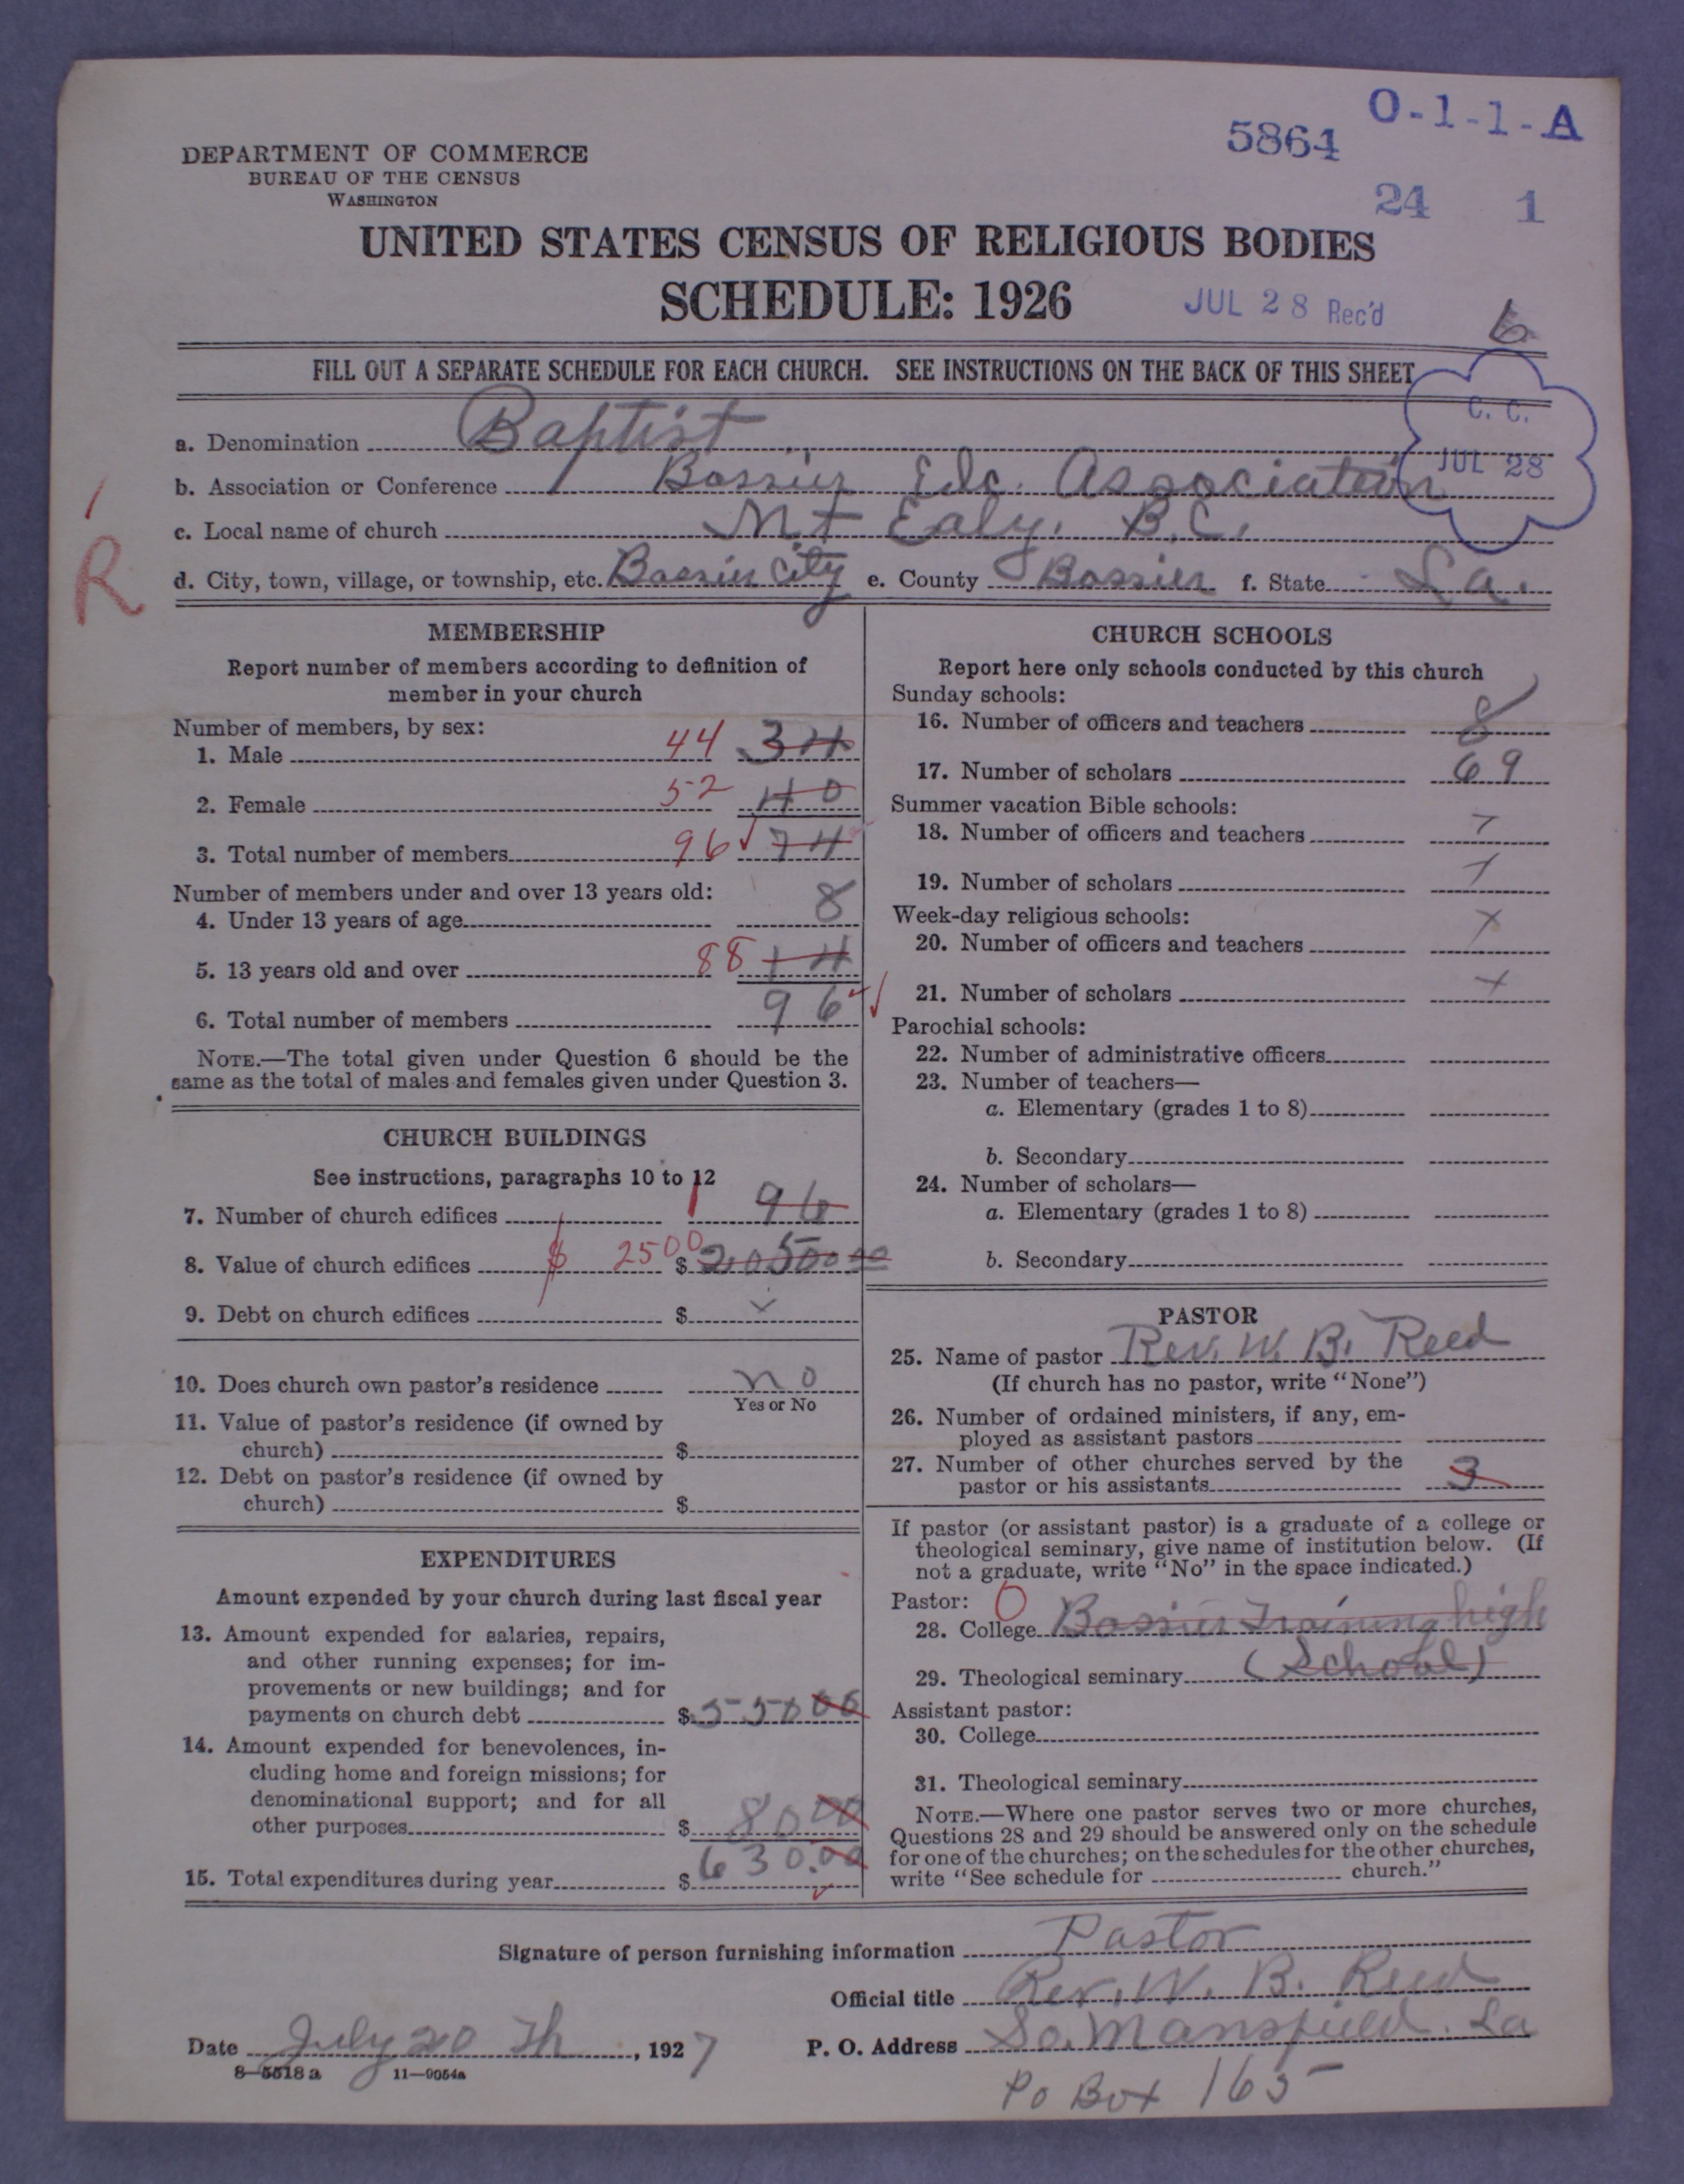 O-1-1-A
5864
24 1
DEPARTMENT OF COMMERCE
BUREAU OF THE CENSUS
WASHINGTON
UNITED STATES CENSUS OF RELIGIOUS BODIES
SCHEDULE: 1926
JUL 28 Rec'd
6
FILL OUT A SEPARATE SCHEDULE FOR EACH CHURCH. SEE INSTRUCTIONS ON THE BACK OF THIS SHEET
C. C.
JUL 28
a. Denomination Baptist
b. Association or Conference Bossier Edc. Association
c. Local name of church Mt Ealy. B.C.
d. City, town, village, or township, etc. Bossier City e. County Bossier f. State La.
R
MEMBERSHIP
Report number of members according to definition of
member in your church
Number of members, by sex:
1. Male 44 34
2. Female 52 40
3. Total number of members 96 74
Number of members under and over 13 years old:
4. Under 13 years of age 8
5. 13 years old and over 88 14
6. Total number of members 96
NOTE.—The total given under Question 6 should be the
same as the total of males and females given under Question 3.
CHURCH BUILDINGS
See instructions, paragraphs 10 to 12
7. Number of church edifices 1 96
8. Value of church edifices $ 2500 $
9. Debt on church edifices $ x
10. Does church own pastor's residence no
Yes or No
11. Value of pastor's residence (if owned by
church) $
12. Debt on pastor's residence (if owned by
church) $
EXPENDITURES
Amount expended by your church during last fiscal year
13. Amount expended for salaries, repairs,
and other running expenses; for im-
provements or new buildings; and for
payments on church debt $ 550 00
14. Amount expended for benevolences, in-
cluding home and foreign missions; for
denominational support; and for all
other purposes $ 80 00
15. Total expenditures during year $ 630.00
CHURCH SCHOOLS
Report here only schools conducted by this church
Sunday schools:
16. Number of officers and teachers 8
17. Number of scholars 69
Summer vacation Bible schools:
18. Number of officers and teachers
19. Number of scholars
Week-day religious schools:
20. Number of officers and teachers x
21. Number of scholars x
Parochial schools:
22. Number of administrative officers
23. Number of teachers—
a. Elementary (grades 1 to 8)
b. Secondary
24. Number of scholars—
a. Elementary (grades 1 to 8)
b. Secondary
PASTOR
25. Name of pastor Rev. W. B. Reed
(If church has no pastor, write "None")
26. Number of ordained ministers, if any, em-
ployed as assistant pastors
27. Number of other churches served by the
pastor or his assistants 3
If pastor (or assistant pastor) is a graduate of a college or
theological seminary, give name of institution below. (If
not a graduate, write "No" in the space indicated.)
Pastor: 0
28. College Bossier Training high
29. Theological seminary (School)
Assistant pastor:
30. College
31. Theological seminary
NOTE.—Where one pastor serves two or more churches,
Questions 28 and 29 should be answered only on the schedule
for one of the churches; on the schedules for the other churches,
write "See schedule for church."
Signature of person furnishing information Pastor
Official title Rev. W. B. Reed
Date July 20 Th, 1927 P. O. Address So. Mansfield. La
8—5518 a 11—9054a
Po Box 165